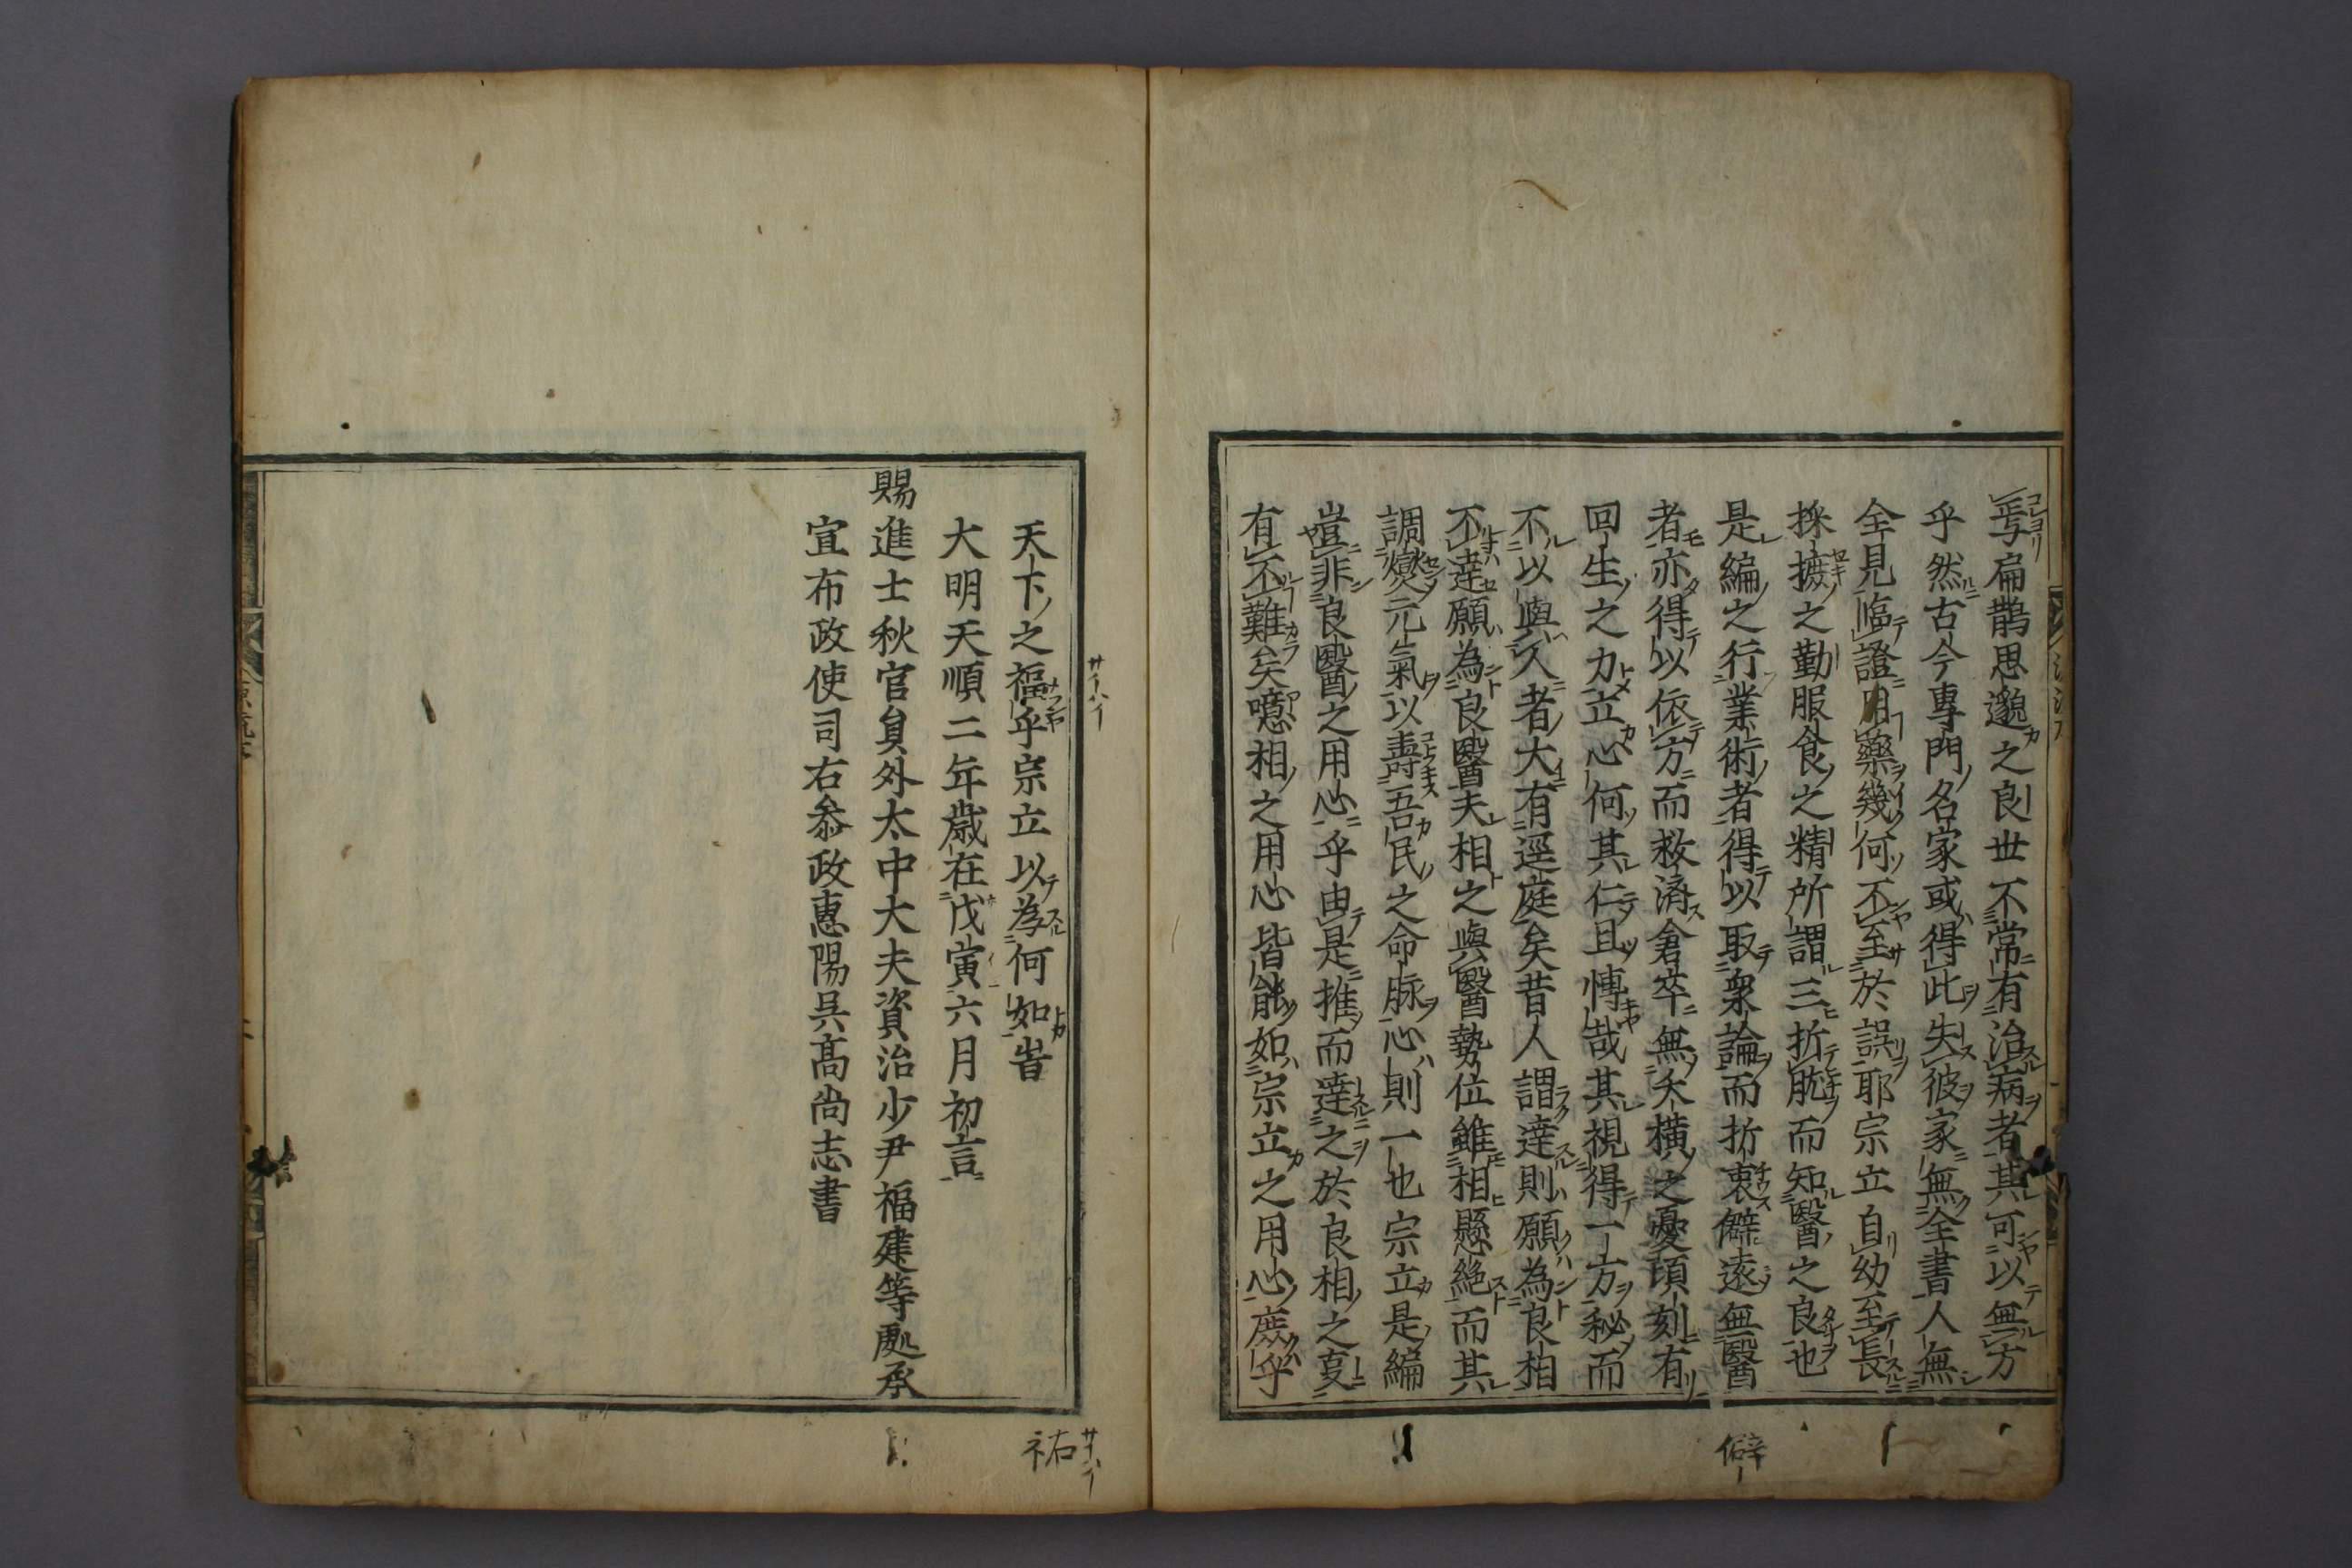 扁鵲思邈之良世不常有治病者其可以無方
乎然古今專門名家或得此失彼家無全書人無
全見臨證用藥幾何不至於誤耶宗立自幼至長
採摭之勤服食之精所謂三折肱而知醫之良也
是編之行業術者得以取衆論而折衷僻遠無醫
者亦得以依方而救濟倉卒無夭横之憂頃刻有
回生之力立心何其仁且慱哉其視得一方秘而
不以與人者大有逕庭矣昔人謂達則願為良相
不達願為良醫夫相之與醫勢位雖相懸絶而其
調爕元氣以壽吾民之命脉心則一也宗立是編
豈非良醫之用心乎由是推而達之於良相之
有不難矣噫相之用心皆能如宗立之用心庶乎
僻
天下之福乎宗立以為何如旹
大明天順二年歲在戊寅六月初吉
賜進士秋官貟外太中大夫資治少尹福建等處承
宣布政使司右叅政惠陽呉髙尚志書
祐